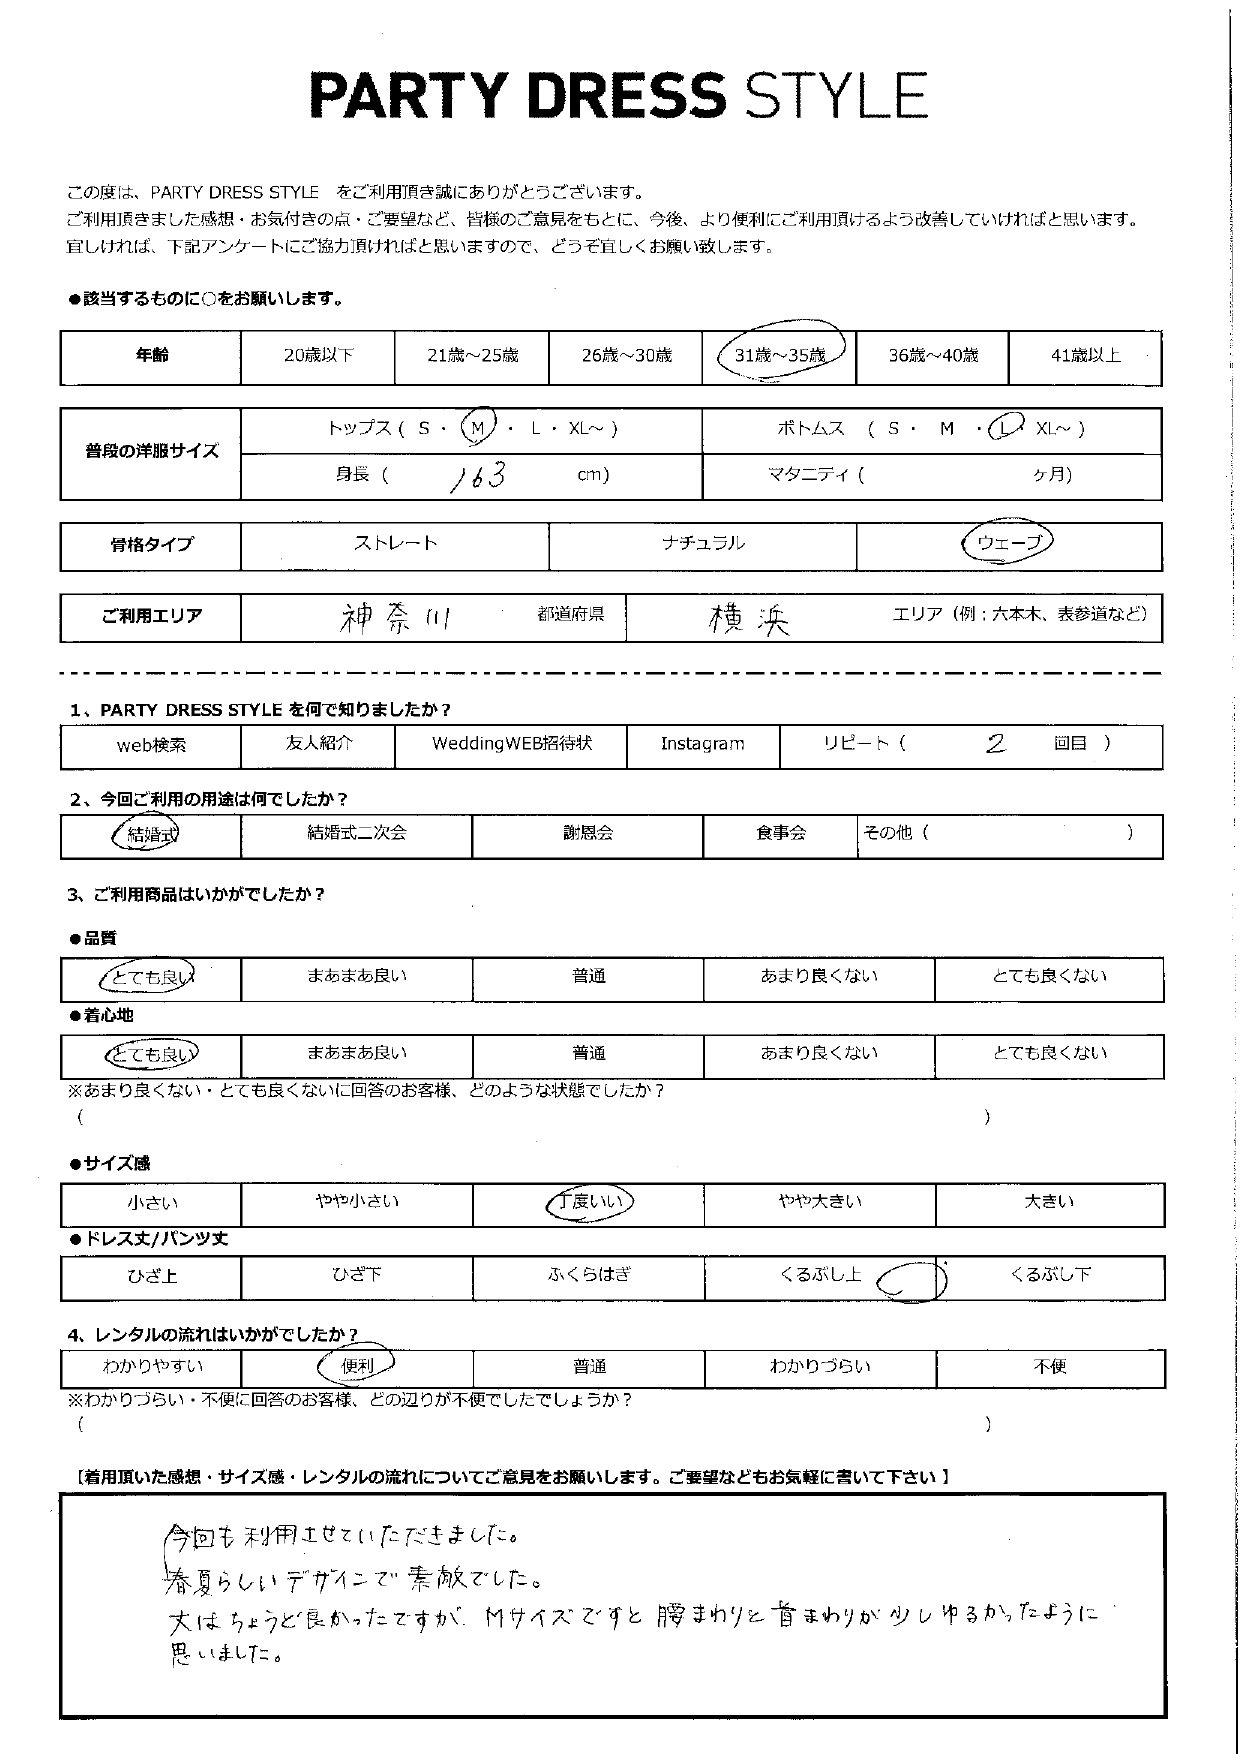 PARTY DRESS STYLE
この度は、PARTY DRESS STYLE をご利用頂き誠にありがとうございます。
ご利用頂きました感想・お気付きの点・ご要望など、皆様のご意見をもとに、今後、より便利にご利用頂けるよう改善していければと思います。
宜しければ、下記アンケートにご協力頂ければと思いますので、どうぞ宜しくお願い致します。
●該当するものに○をお願いします。
年齢 20歳以下 21歳～25歳 26歳～30歳 31歳～35歳 36歳～40歳 41歳以上
普段の洋服サイズ
トップス ( S ・ M ・ L ・ XL～ ) ボトムス ( S ・ M ・ L XL～ )
身長 ( 163 cm) マタニティ ( ヶ月)
骨格タイプ ストレート ナチュラル ウェーブ
ご利用エリア 神奈川 都道府県 横浜 エリア（例；六本木、表参道など）
1、PARTY DRESS STYLE を何で知りましたか？
web検索 友人紹介 WeddingWEB招待状 Instagram リピート ( 2 回目 )
2、今回ご利用の用途は何でしたか？
結婚式 結婚式二次会 謝恩会 食事会 その他 ( )
3、ご利用商品はいかがでしたか？
●品質
とても良い まあまあ良い 普通 あまり良くない とても良くない
●着心地
とても良い まあまあ良い 普通 あまり良くない とても良くない
※あまり良くない・とても良くないに回答のお客様、どのような状態でしたか？
( )
●サイズ感
小さい やや小さい 丁度いい やや大きい 大きい
●ドレス丈/パンツ丈
ひざ上 ひざ下 ふくらはぎ くるぶし上 くるぶし下
4、レンタルの流れはいかがでしたか？
わかりやすい 便利 普通 わかりづらい 不便
※わかりづらい・不便に回答のお客様、どの辺りが不便でしたでしょうか？
( )
【着用頂いた感想・サイズ感・レンタルの流れについてご意見をお願いします。ご要望などもお気軽に書いて下さい】
今回も利用させていただきました。
春夏らしいデザインで素敵でした。
丈はちょうど良かったですが、Mサイズですと腰まわりと首まわりが少しゆるかったように
思いました。